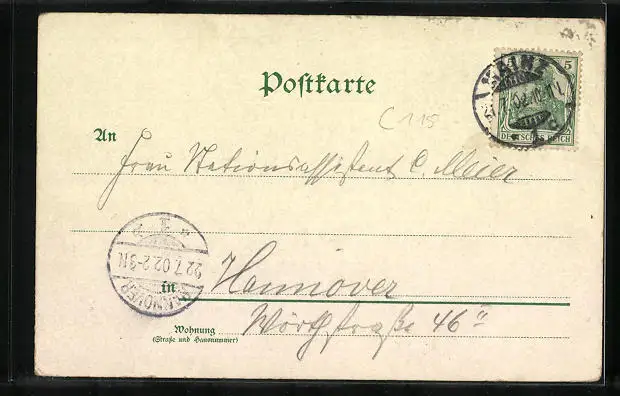 MAINZ
5
DEUTSCHES REICH
Postkarte
C 115
An
Frau Stationsassistent C. Meier
22.7.02.2-3N.
HANNOVER
in Hannover
Wörthstraße 46 II
Wohnung
(Straße und Hausnummer)